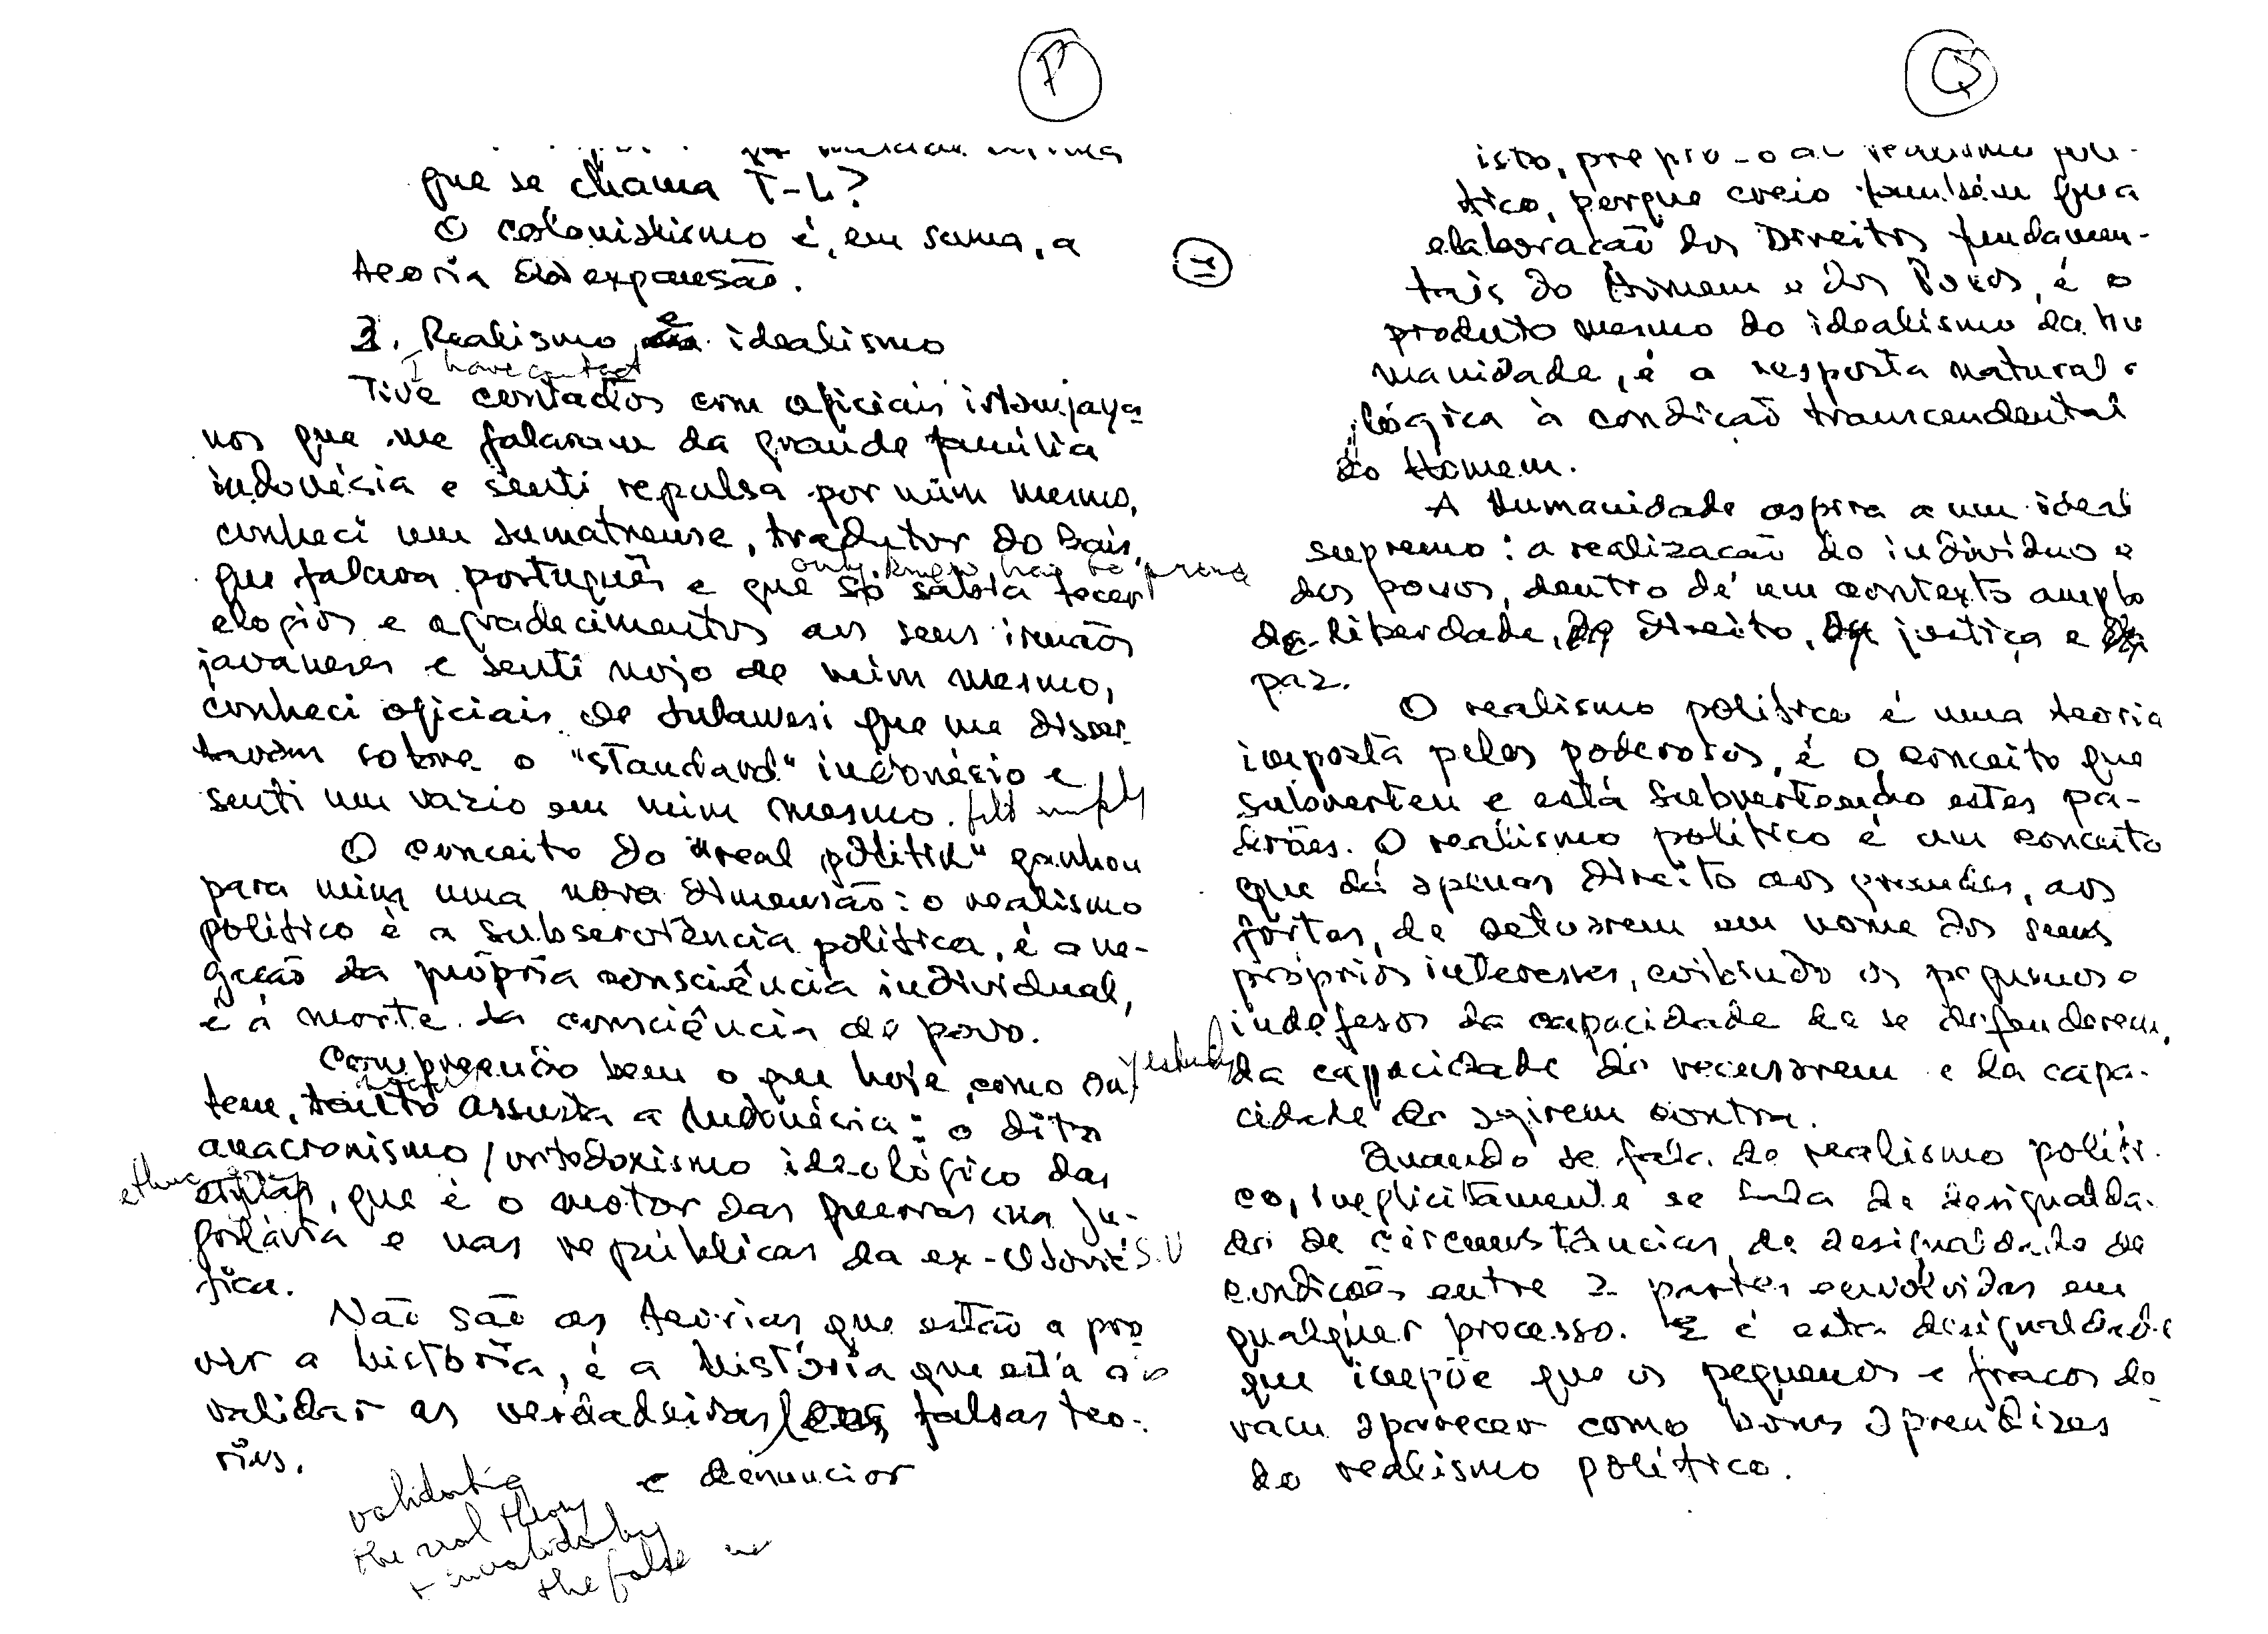 P
que se chama T-L?
O colonialismo é, em suma, a
teoria da expansão.
3. Realismo e idealismo
I have contact
Tive contados com oficiais
nos que me falaram da grande família
indonésia e senti repulsa por mim mesmo,
conheci um sumatrense, tradutor do Bais,
only knew how to
que falava português e que só sabia tecer
elogios e agradecimentos aos seus irmãos
javaneses e senti nojo de mim mesmo,
conheci oficiais de Sulawesi que me disser
tavam sobre o "standard" indonésio e
senti um vazio em mim mesmo. felt empty
O conceito do "real politik" ganhou
para mim uma nova dimensão: o realismo
político é a subserviência política, é a ne-
gação da própria consciência individual,
é a morte da consciência de povo.
Compreendo bem o que hoje, como on yesterday
tem, tanto assusta a Indonésia: o dito
anacronismo/ortodoxismo ideológico das
etnias, que é o motor das guerras na Ju-
goslávia e nas repúblicas da ex-União Sovié S.U
tica.
Não são as teorias que estão a pro
ver a história, é a história que está a
validar as verdadeiras falsas teo-
rias.
e denunciar
validating
the real theory
+ invalidating
the false
Q
isto,
tico, porque creio também que a
elaboração dos Direitos fundamen-
tais do Homem e dos Povos, é o
produto mesmo do idealismo da hu
manidade, é a resposta natural e
lógica à condição transcendental
do Homem.
A Humanidade aspira a um ideal
supremo: a realização do indivíduo e
dos povos, dentro de um contexto amplo
de liberdade, de direito, de justiça e de
paz.
O realismo político é uma teoria
imposta pelos poderosos, é o conceito que
subverteu e está subvertendo estes pa-
drões. O realismo político é um conceito
que dá apenas direito aos grandes, aos
fortes, de actuarem em nome dos seus
próprios interesses, coibindo os pequenos e
indefesos da capacidade de se defenderem,
da capacidade de recusarem e da capa-
cidade de agirem contra.
Quando se fala de realismo políti-
co, implicitamente se fala de desigualda-
de de circunstâncias, de desigualdade de
condições entre 2 partes envolvidas em
qualquer processo. E é esta desigualdade
que impõe que os pequenos e fracos de-
vam aparecer como bons aprendizes
do realismo político.